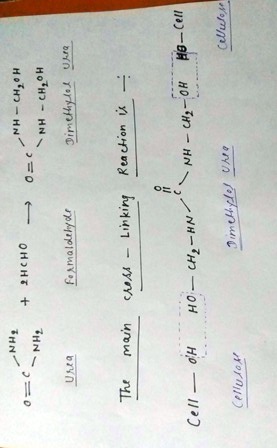 O=C NH2 NH2 + 2HCHO → O=C NH—CH2OH NH—CH2OH
Urea Formaldehyde Dimethylol Urea
The main cross-Linking Reaction is —:
O
Cell—OH HO—CH2—HN C NH—CH2—OH HO—Cell
Cellulose Dimethylol Urea Cellulose